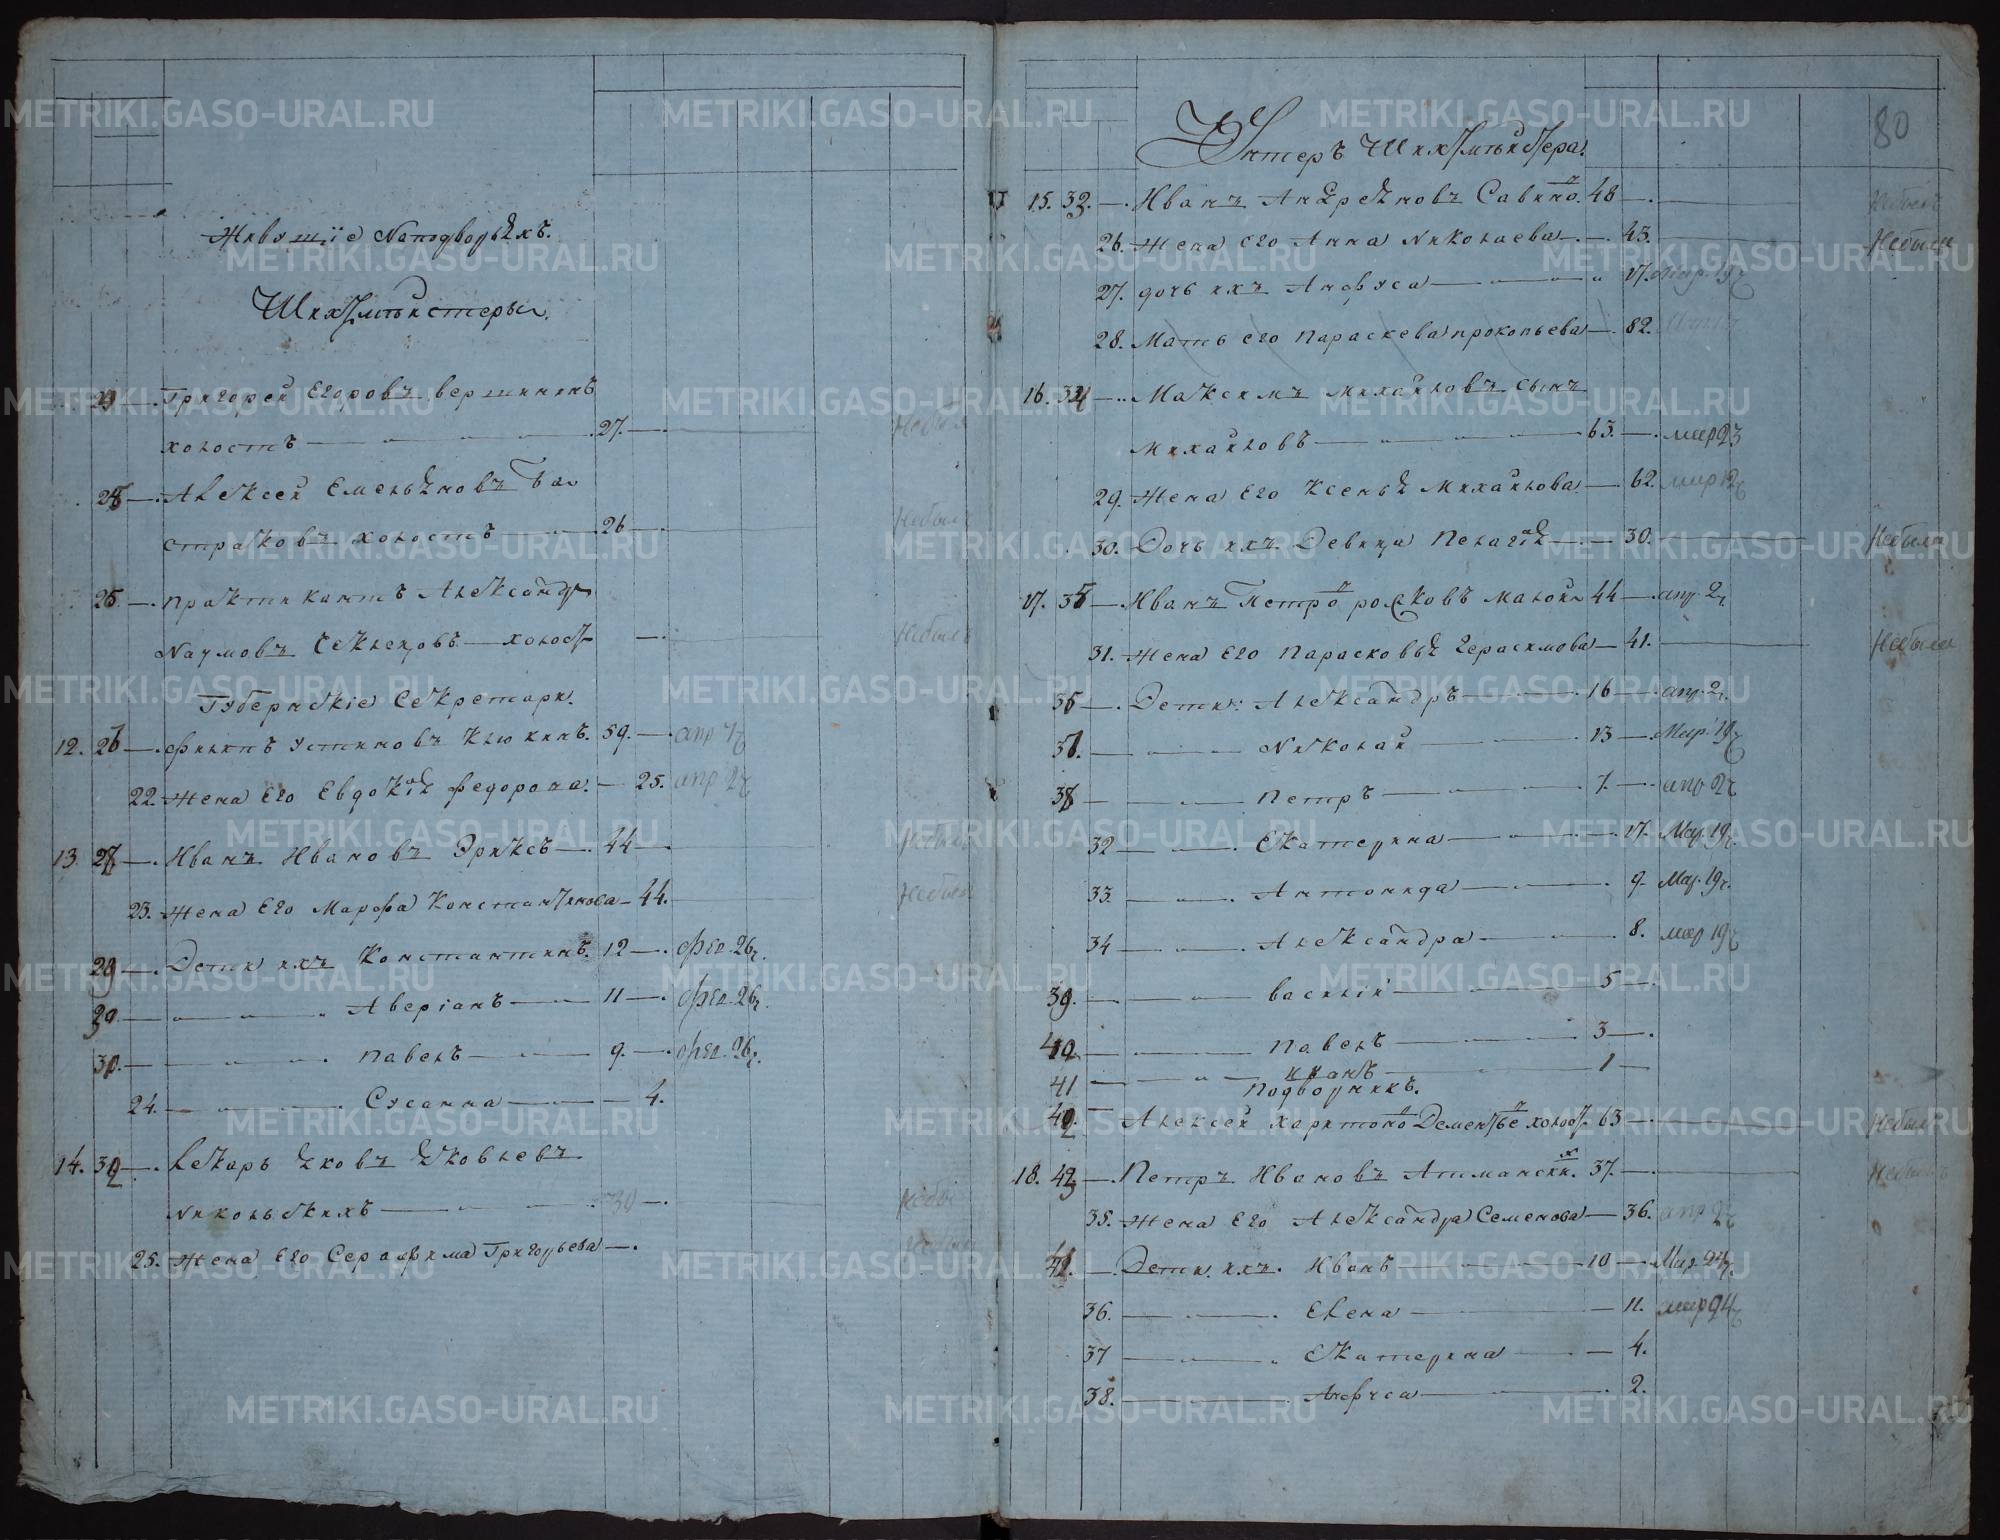 Живущіе
Шихтмѣистеры.
23 — Григорей Егоровъ вершининъ
холостъ — 27. —
24 — Алексей Емельяновъ
страковъ холостъ — 26 —
25 — практикантъ Александръ
Наумовъ — холост
Небылъ
Губернскіе Секретари.
12. 26 — филипъ устиновъ Клюкинъ. 59. — апр
22. Жена Его Евдокія федорова. — 25. апр
13. 27 — Иванъ Ивановъ — 44 —
23. Жена Его Марфа Константинова — 44.
28 — Дети ихъ Константинъ. 12 — фев. 26
29 — Аверіанъ — 11 — фев. 26
30. — павелъ — 9. — фев. 26
24. — Сусанна — 4.
14. Лекарь Яковъ Яковлевъ
Никольскихъ — 30 —
25. Жена Его Серафима Григорьева —.
80
Унтеръ Шихтмѣистера.
15. 32. — Иванъ Андреяновъ Савино 48 —
26. Жена его Анна Николаева — 43. Небыла
27. дочь ихъ Анфуса — 17. Мар. 19
28. Мать его Параскева прокопьева — 82.
16. — Максимъ михаиловъ сынъ
Михаиловъ — 63. — мар 23
29. Жена Его Ксенья Михаилова — 62. мар
30. Дочь ихъ Девица Пелагія — 30. Небыла
17. — Иванъ Петро малои 44 — апр. 2
31. Жена Его Парасковья герасимова — 41. Небыла
— Дети: Александръ — 16 — апр. 2
— Николаи — 13 — Мар. 19
38 — Петръ — 7. — апр 2
32 — Екатерина — 17. Мар. 19
33 — Антонида — 9. Мар. 19
34 — Александра — 8. мар 19
39. — василіи — 5 —
40 — Павелъ — 3 —
41 — иванъ — 1 —
Подворникъ.
— Алексеи харитоно Дементье холост 63 —
18. — Петръ Ивановъ 37. —
35. Жена Его Александра Семенова — 36. апр 2
— Дети ихъ. Иванъ — 10 — Мар. 24
36. — Елена — 11. мар 24
37 — Екатерина — 4.
38. — Анфуса — 2.
METRIKI.GASO-URAL.RU